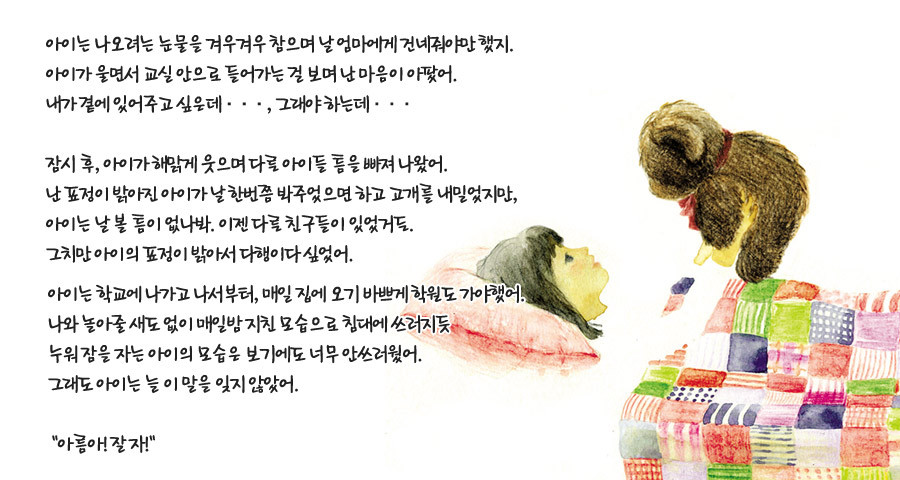 아이는 나오려는 눈물을 겨우겨우 참으며 날 엄마에게 건네줘야만 했지.
아이가 울면서 교실 안으로 들어가는 걸 보며 난 마음이 아팠어.
내가 곁에 있어주고 싶은데···, 그래야 하는데···
잠시 후, 아이가 해맑게 웃으며 다른 아이들 틈을 빠져 나왔어.
난 표정이 밝아진 아이가 날 한번쯤 봐주었으면 하고 고개를 내밀었지만,
아이는 날 볼 틈이 없나봐. 이젠 다른 친구들이 있었거든.
그치만 아이의 표정이 밝아서 다행이다 싶었어.
아이는 학교에 나가고 나서부터, 매일 집에 오기 바쁘게 학원도 가야했어.
나와 놀아줄 새도 없이 매일밤 지친 모습으로 침대에 쓰러지듯
누워 잠을 자는 아이의 모습은 보기에도 너무 안쓰러웠어.
그래도 아이는 늘 이 말을 잊지 않았어.
"아름아! 잘 자!"